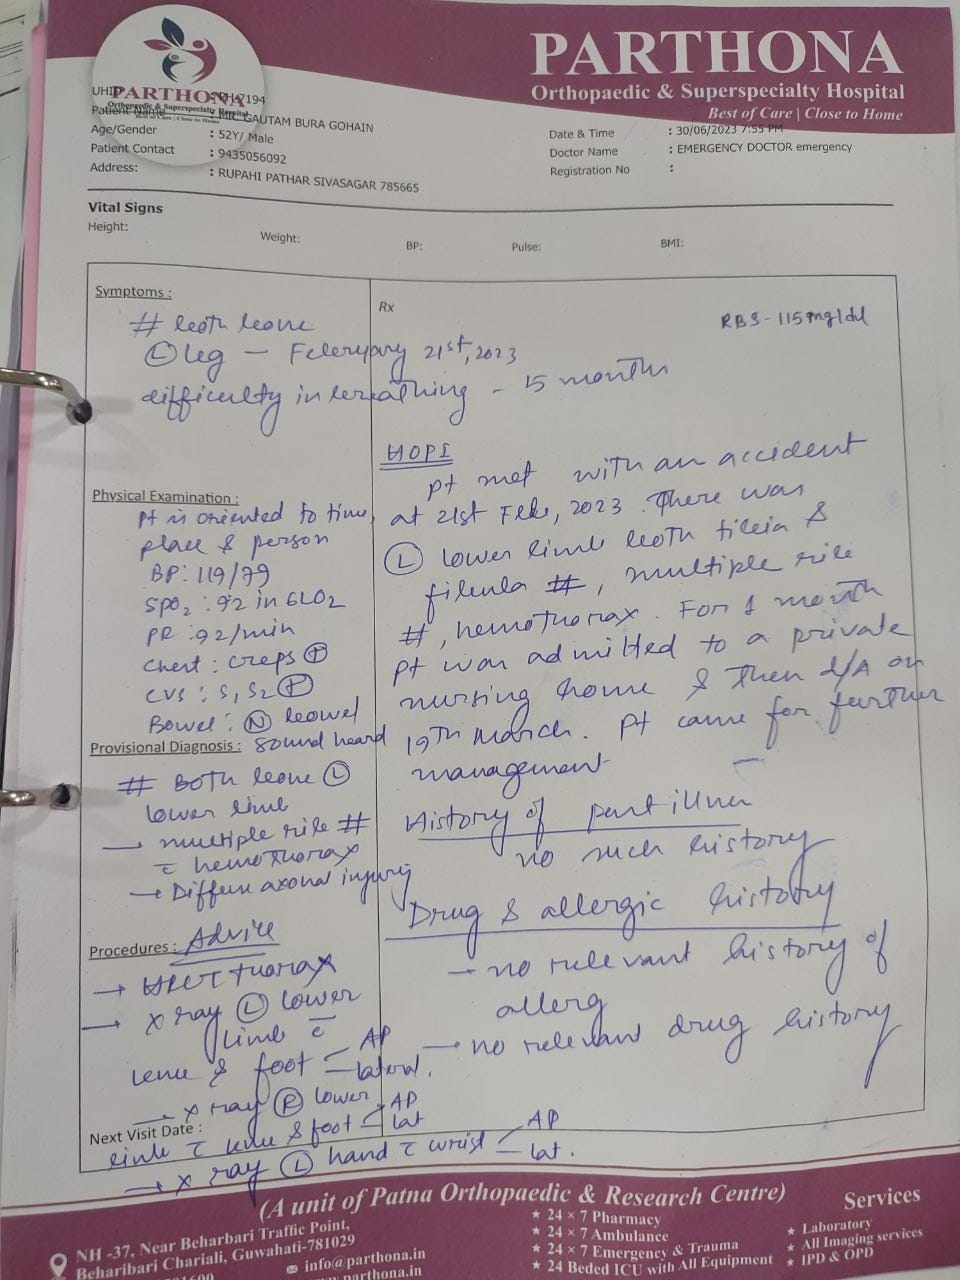 PARTHONA
Orthopaedic & Superspecialty Hospital
Best of Care | Close to Home
PARTHONA
Orthopaedic & Superspecialty Hospital
Best of Care | Close to Home
UHID 7194
Patient Name : MR. GAUTAM BURA GOHAIN
Age/Gender : 52Y/ Male
Patient Contact : 9435056092
Address: : RUPAHI PATHAR SIVASAGAR 785665
Date & Time : 30/06/2023 7:55 PM
Doctor Name : EMERGENCY DOCTOR emergency
Registration No :
Vital Signs
Height: Weight: BP: Pulse: BMI:
Symptoms :
# both bone
Ⓛ leg - Feberyary 21st, 2023
difficulty in breathing - 15 month
Physical Examination :
Pt is oriented to time,
place & person
BP: 119/79
SPO2 : 92 in 6LO2
PR : 92/min
Chest : creps ⊕
CVS : S1 S2 ⊕
Bowel : Ⓝ bowel
sound heard
Provisional Diagnosis :
# Both bone Ⓛ
lower limb
→ multiple rib #
c̄ hemothorax
→ Diffuse axonal injury
Procedures : Advice
→ HRCT thorax
→ X ray Ⓛ lower
limb c̄
knee & foot < AP
lateral.
→ X ray Ⓡ lower
limb c̄ knee & foot < AP
lat
→ X ray Ⓛ hand c̄ wrist < AP
lat.
Next Visit Date :
Rx
RBS - 115mg/dl
HOPI
Pt met with an accident
at 21st Feb, 2023. There was
Ⓛ lower limb both tibia &
fibula #, multiple rib
#, hemothorax. For 1 month
pt was admitted to a private
nursing home & then d/A on
19th March. Pt came for further
management
History of past illness
no such history
Drug & allergic history
→ no relevant history of
allerg
→ no relevant drug history
(A unit of Patna Orthopaedic & Research Centre)
NH -37, Near Beharbari Traffic Point,
Beharibari Chariali, Guwahati-781029
info@parthona.in
parthona.in
★ 24 × 7 Pharmacy
★ 24 × 7 Ambulance
★ 24 × 7 Emergency & Trauma
★ 24 Beded ICU with All Equipment
Services
★ Laboratory
★ All Imaging services
★ IPD & OPD